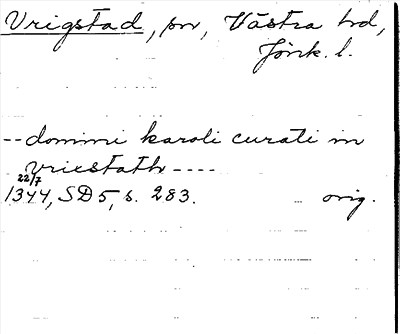 Vrigstad, sn, Västra hd,
Jönk. l.
-- domini karoli curati in
vricstath ----
22/7
1344, SD 5, s. 283. orig.